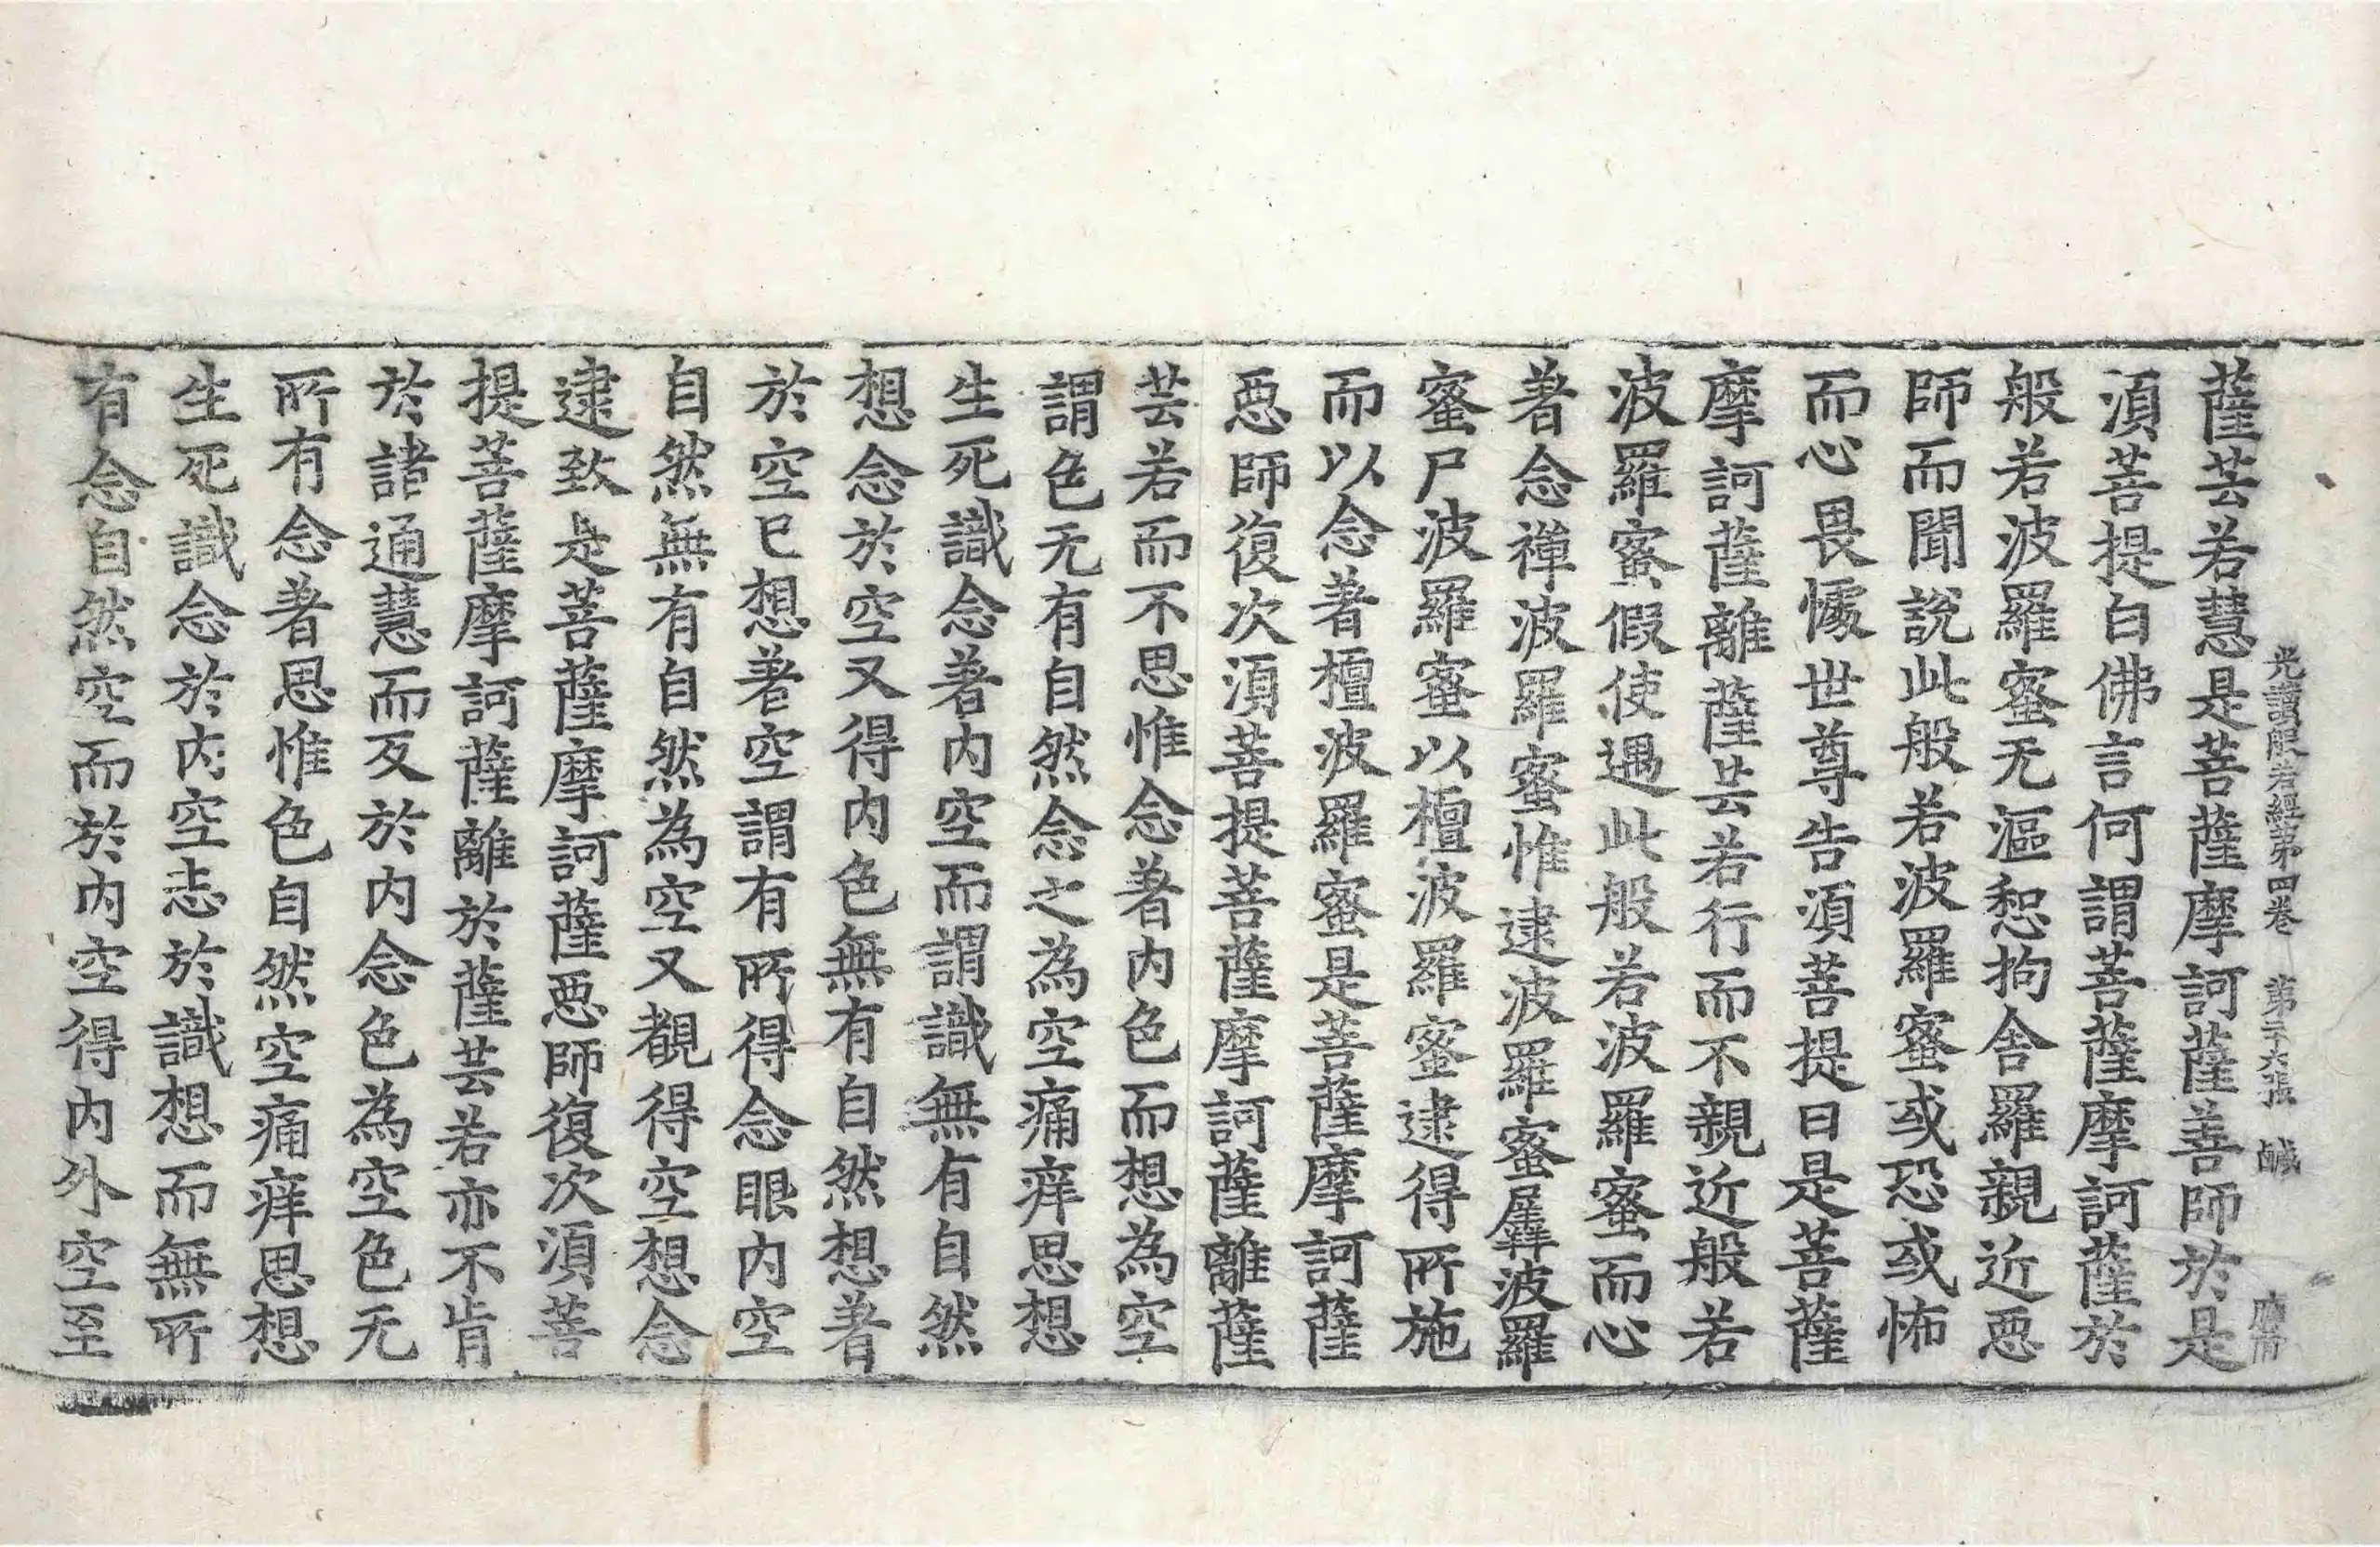 光讚般若經第四卷 第二十六張 鹹
薩芸若慧是菩薩摩訶薩善師於是
湏菩提白佛言何謂菩薩摩訶薩於
般若波羅蜜无漚惒拘舍羅親近𢙣
師而聞說此般若波羅蜜或恐或怖
而心畏懅世尊告湏菩提曰是菩薩
摩訶薩離薩芸若行而不親近般若
波羅蜜假使遇此般若波羅蜜而心
著念禪波羅蜜惟逮波羅蜜羼波羅
蜜尸波羅蜜以檀波羅蜜逮得所施
而以念著檀波羅蜜是菩薩摩訶薩
𢙣師復次湏菩提菩薩摩訶薩離薩
芸若而不思惟念著内色而想為空
謂色无有自然念之為空痛痒思想
生死識念著内空而謂識無有自然
想念於空又得内色無有自然想著
於空已想著空謂有所得念眼内空
自然無有自然為空又覩得空想念
逮致是菩薩摩訶薩𢙣師復次湏菩
提菩薩摩訶薩離於薩芸若亦不肯
於諸通慧而反於内念色為空色无
所有念著思惟色自然空痛痒思想
生死識念於内空志於識想而無所
有念自然空而於内空得内外空至